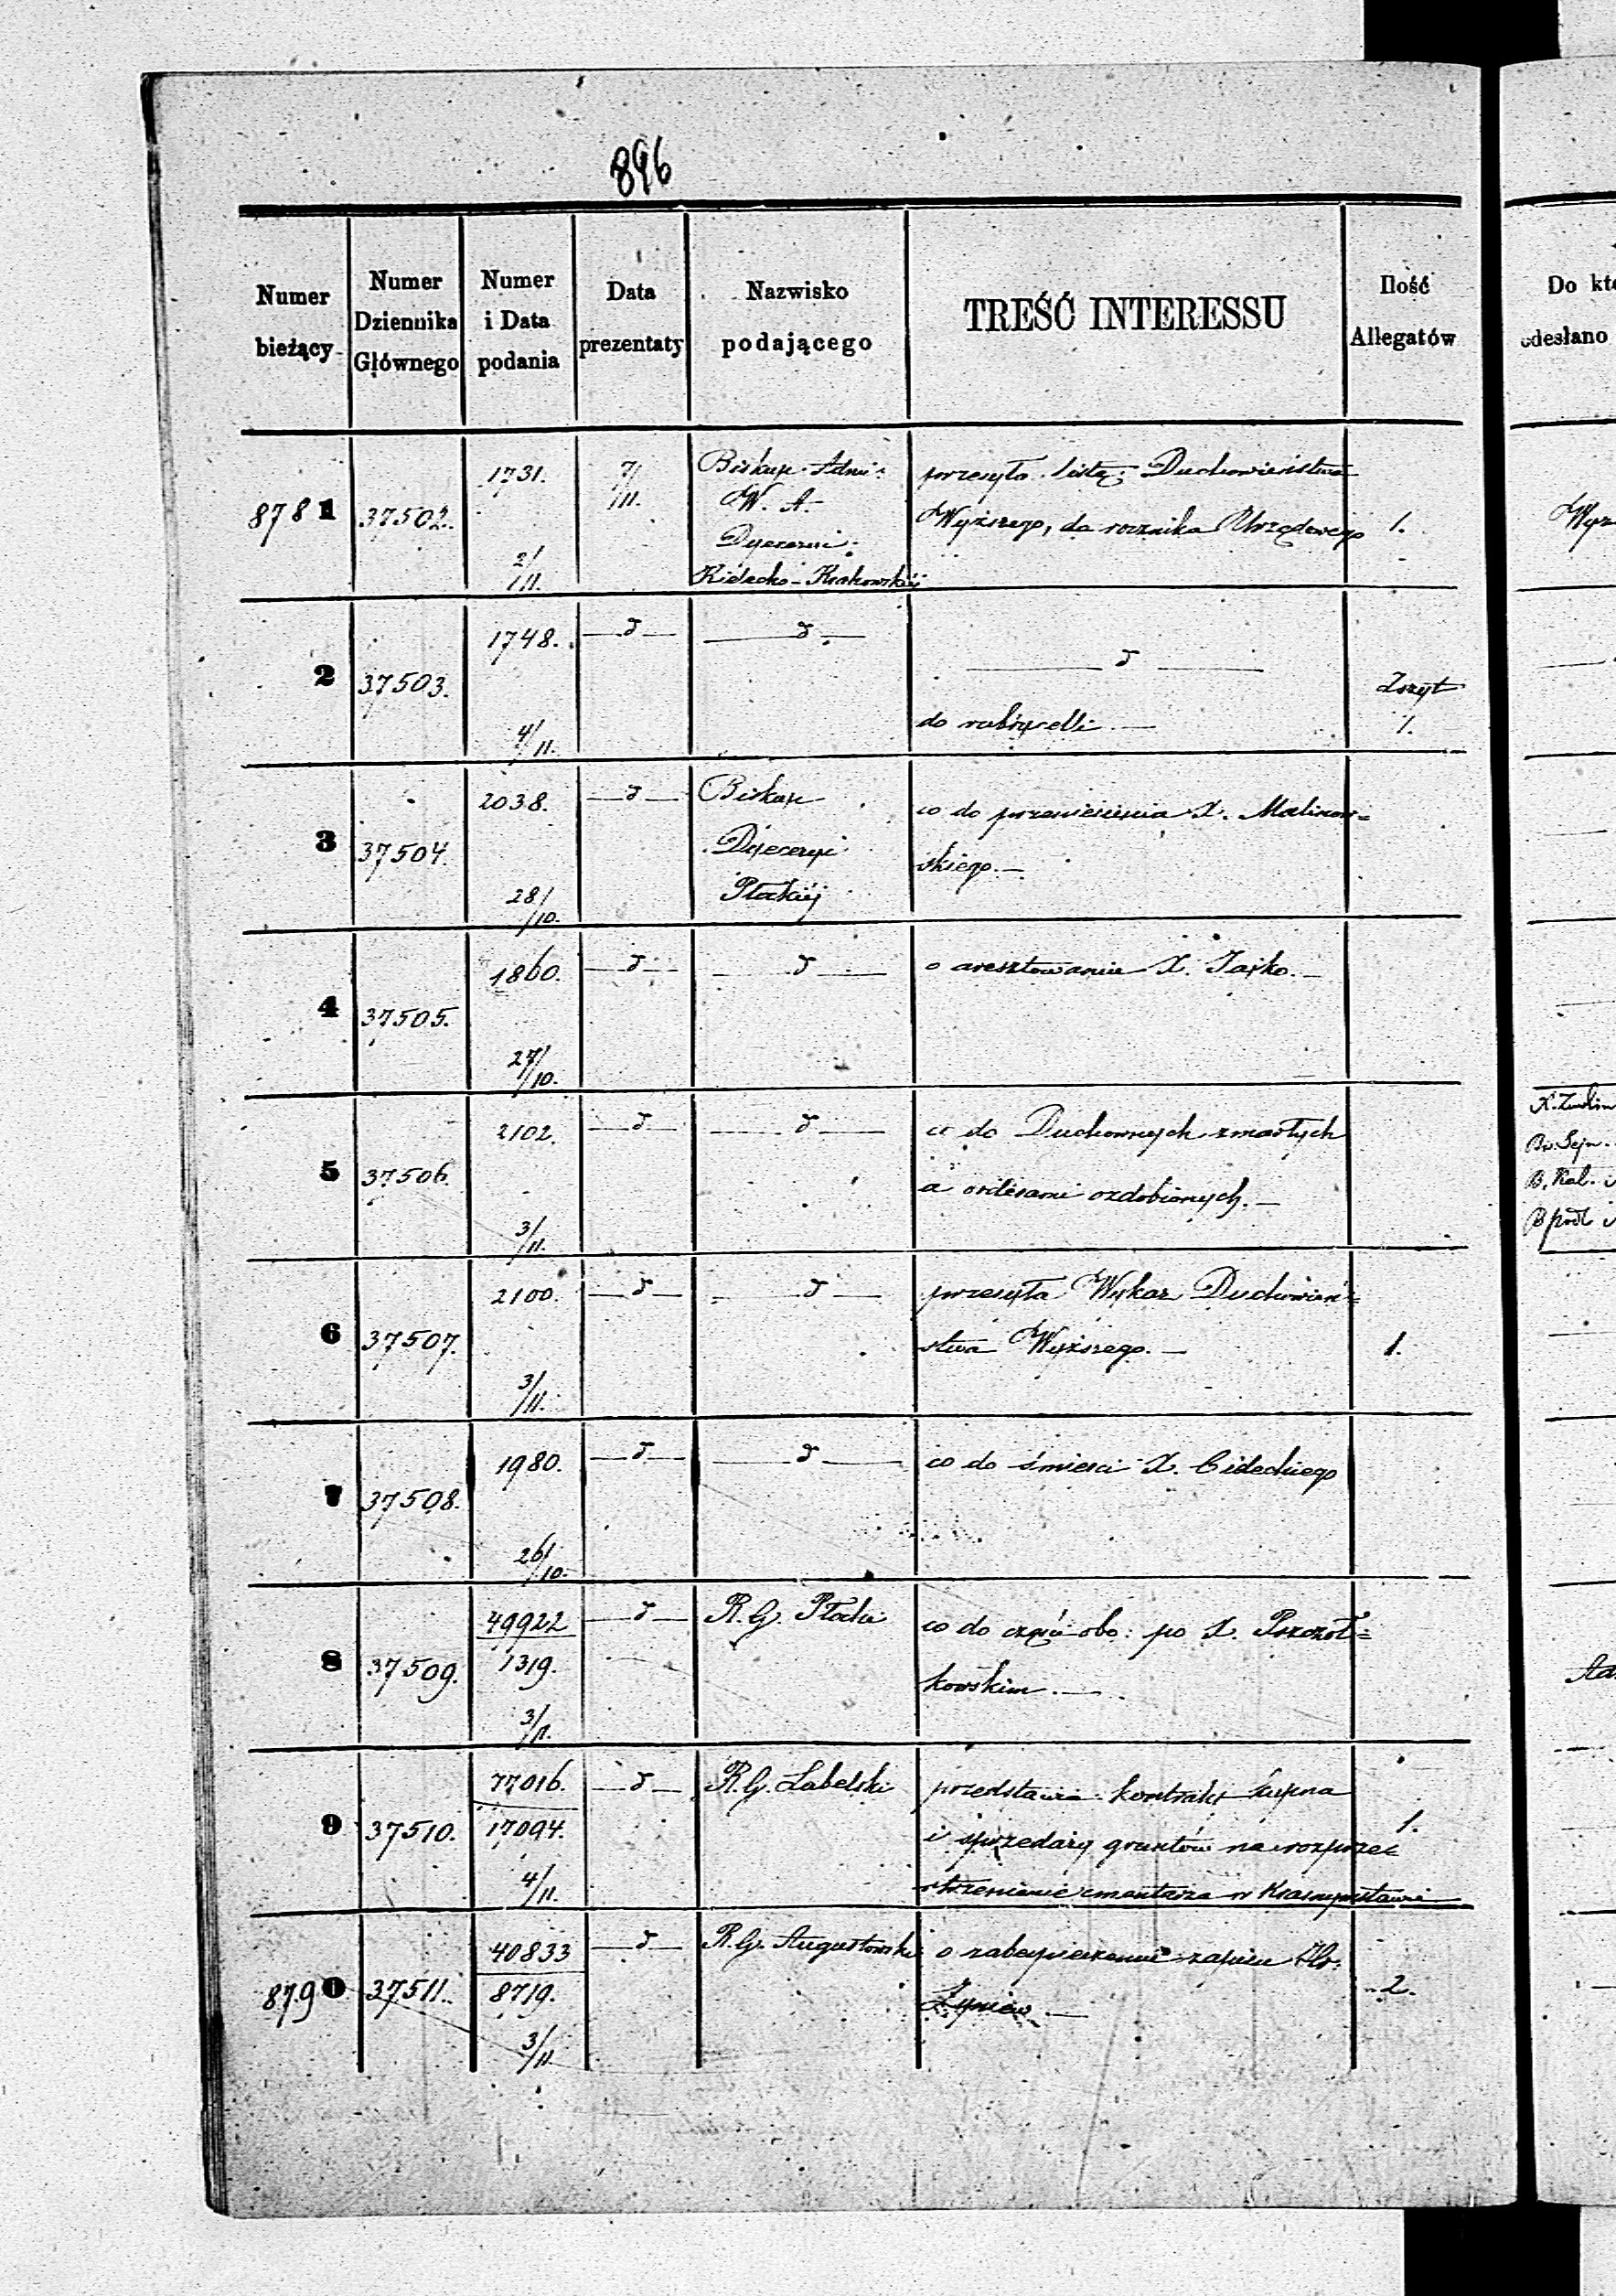 896
Numer bieżący
Numer Dziennika Głównego
Numer i Data podania
Data prezentaty
Nazwisko podającego
TREŚĆ INTERESSU
Ilość Allegatów
Do kt
odesłano
8781
37502.
1731.
2/11.
7/11.
Biskup Adm:
W. A.
Dyecezyi
Kielecko-Krakowskiej
przesyła listę Duchowieństwa
Wyższego, do rocznika Urzędowego
1.
2
37503.
1748.
4/11.
—d—
—d—
—d—
do rubrycelli —
Zszyt
1.
3
37504.
2038.
28/10.
—d—
Biskup
Dyecezyi
Płockiej
co do przeniesienia X. Malinow=
skiego. —
4
37505.
1860.
27/10.
—d—
—d—
o aresztowaniu X. —
5
37506.
2102.
3/11.
—d—
—d—
co do Duchownych zmarłych
a orderami ozdobionych. —
B. Kal.
6
37507.
2100.
3/11.
—d—
—d—
przesyła Wykaz Duchowień=
stwa Wyższego. —
1.
7
37508.
1980.
26/10.
—d—
—d—
co do śmierci X.
8
37509.
49922
1319.
3/11.
—d—
R. G. Płocki
co do obo: po X. Pszczoł=
kowskim. —
9
37510.
77016.
17094.
4/11.
—d—
R. G. Lubelski
przedstawia kontrakt kupna
i sprzedaży gruntów na rozprze=
strzenienie cmentarza w Krasnymstawie
1.
8790
37511.
40833
8719.
3/11.
—d—
R. G. Augustowski
o zabezpieczenie zapisu
2.